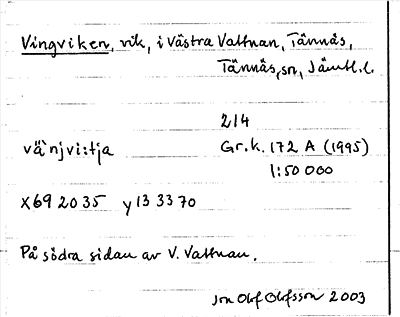 Vingviken, vik, i Västra Vattnan, Tännäs,
Tännäs, sn, Jämtl. l.
214
vä̀njvi:tja Gr.k. 172 A (1995)
1:50 000
X69 20 35 y 13 33 70
På södra sidan av V. Vattnan.
Jon Olof Olofsson 2003